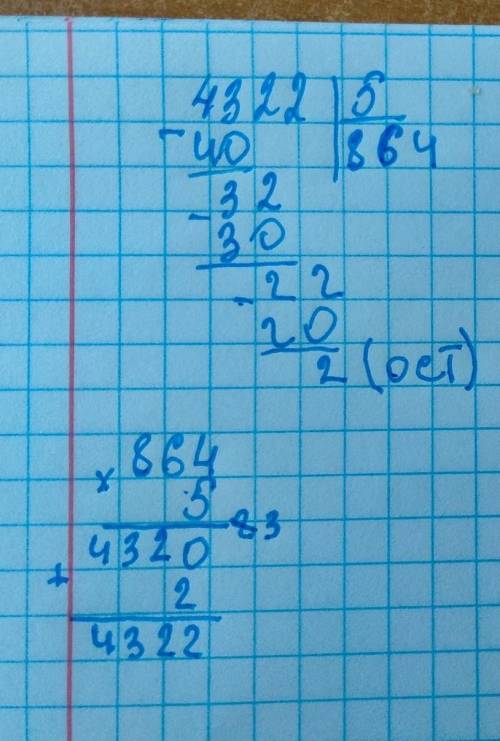 4322 5
- 40 864
- 32
30
- 22
20
2 (ост)
× 864
5
4320 83
+ 2
4322